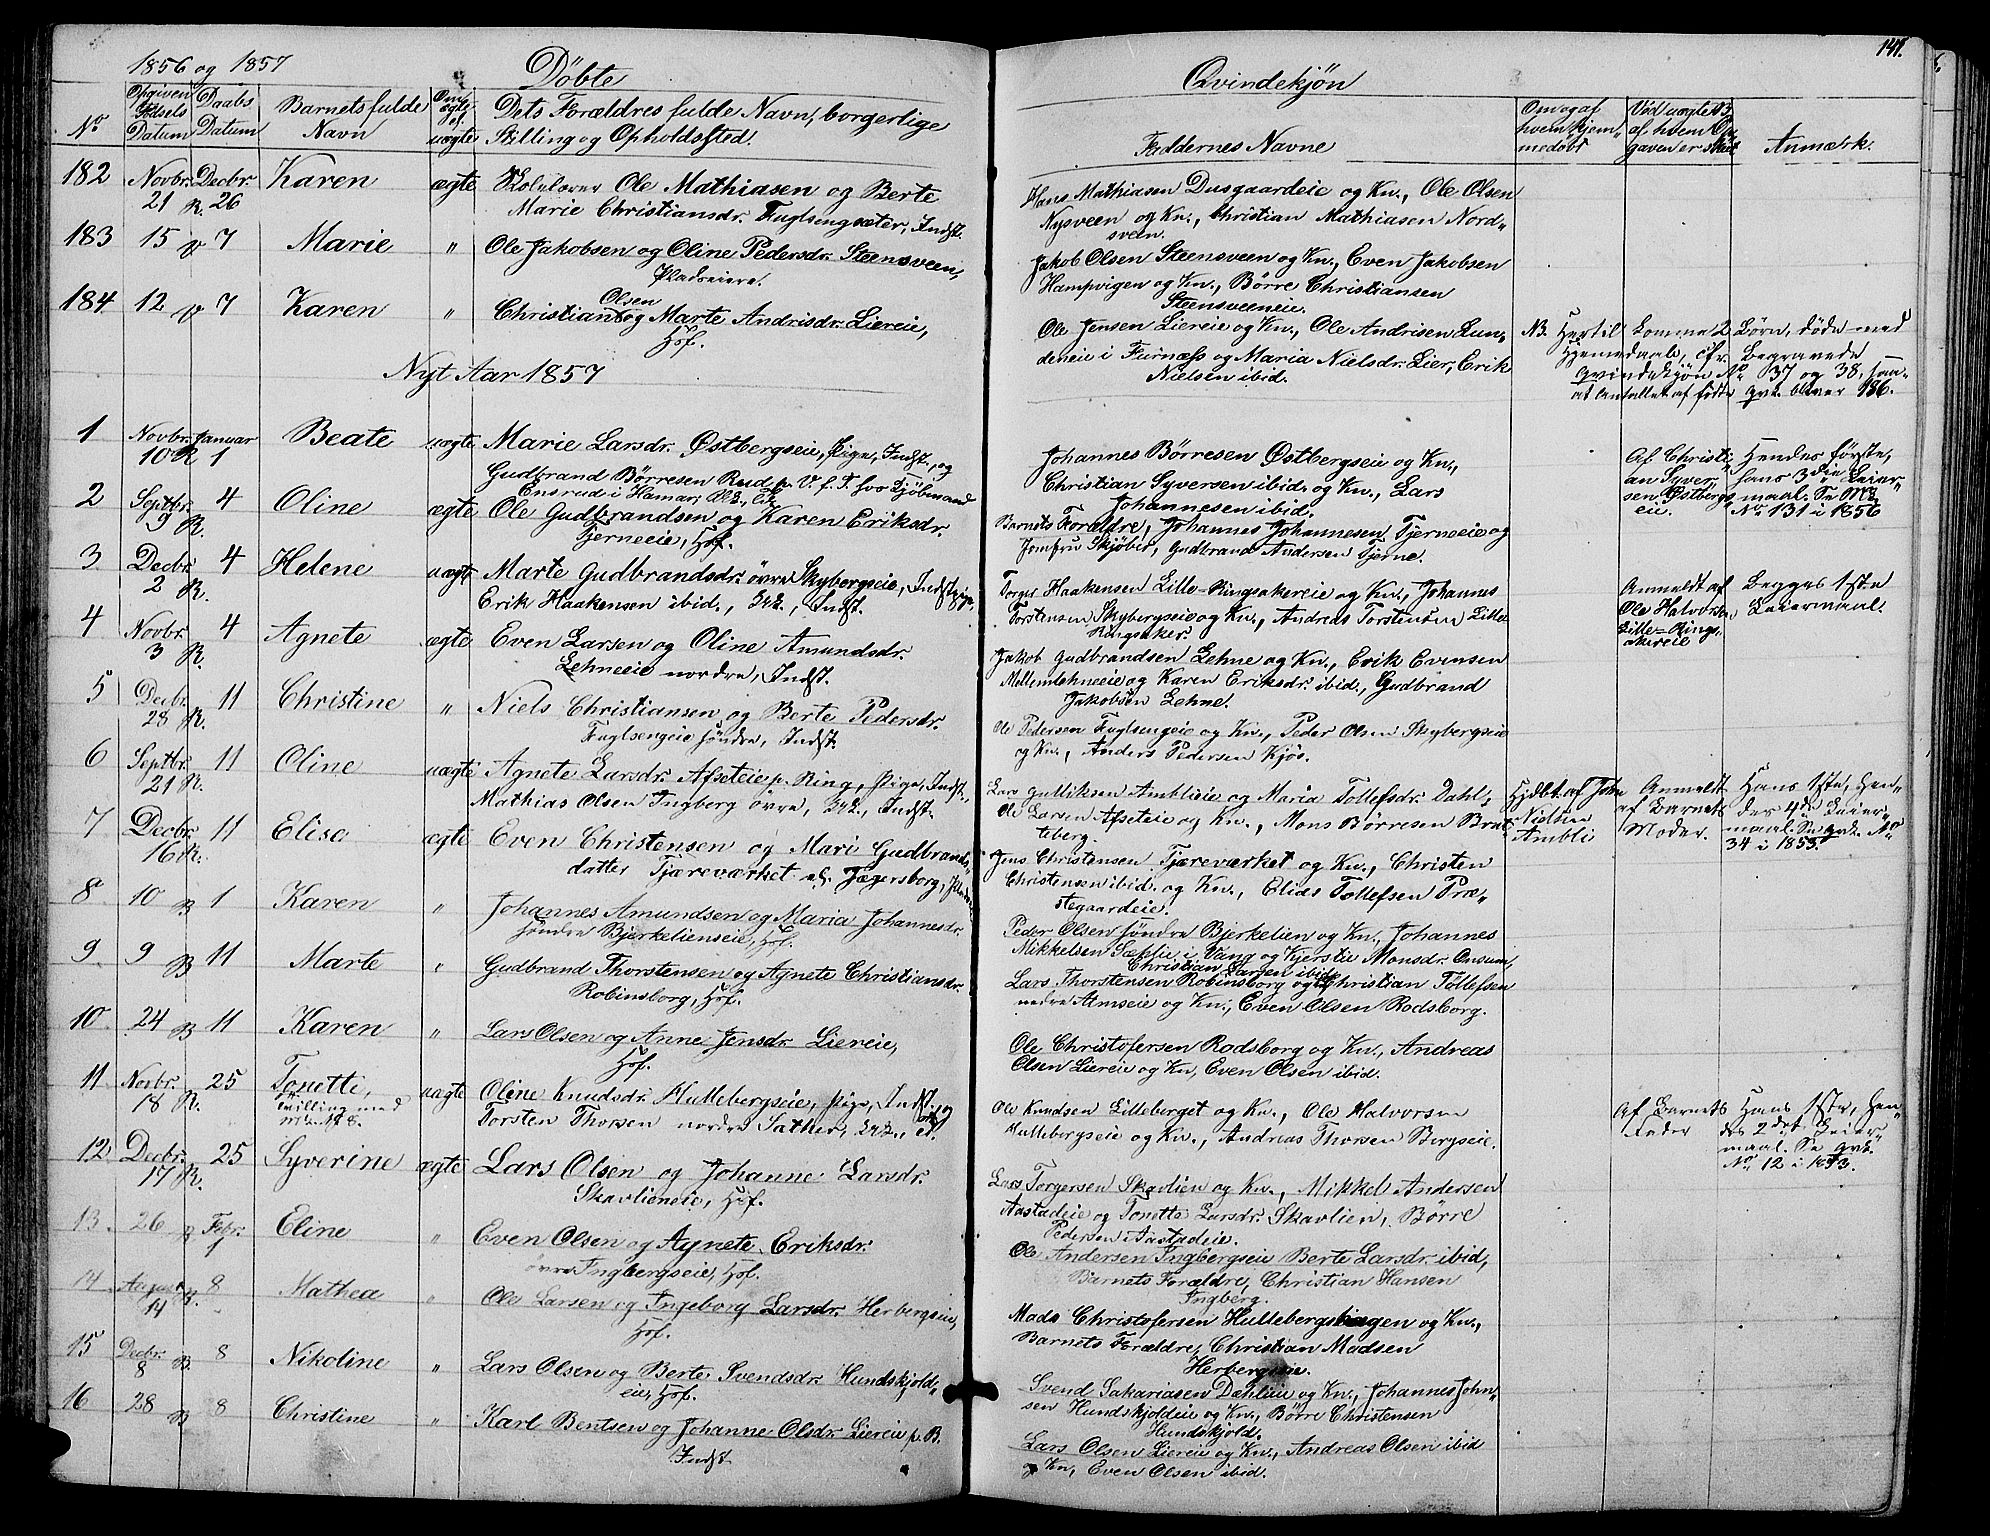 1856 og 1857
Döbte
No
Opgiven Fødsels Datum
Daabs Datum
Barnets fulde Navn
Om ægte el. uægte
Dets Forældres fulde Navn, borgerlige
Stilling og Opholdssted.
182 Novbr. 21 Decbr. R. 26 Karen ægte Skolelærer Ole Mathiasen og Berte
Marie Christiansdr. Fuglsengsæter, Indst.
183 15 7 Marie " Ole Jakobsen og Oline Pedersdr. Steensveen,
Pladseiere.
184 12 7 Karen " Christian Olsen og Marte Andrisdr. Liereie,
Hof.
Nyt Aar 1857
1 Novbr. 10 R Januar 1 Beate uægte Marie Larsdr. Østbergseie, Pige, Indst., og
Gudbrand Børresen Rud
Ensrud i Hamar,
2 Septbr. 9 R. 4 Oline ægte Ole Gudbrandsen og Karen Eriksdr.
Tjerneeie, Hof.
3 Decbr. 2 R. 4 Helene uægte Marte Gudbrandsdr. övre Skybergseie, Indst. pige,
Erik Haakensen ibid., Indst.
4 Novbr. 3 R. 4 Agnete ægte Even Larsen og Oline Amundsdr.
Lehneeie nordre, Indst.
5 Decbr. 28 R. 11 Christine " Niels Christiansen og Berte Pedersdr.
Fuglsengeie söndre, Indst.
6 Septbr. 21 R. 11 Oline uægte Agnete Larsdr. Afseteie p. Ring, Pige, Indst.,
Mathias Olsen Ingberg övre, Indst.
7 Decbr. 16 R. 11 Elise ægte Even Christensen og Mari Gudbrands-
datter Tjæreværket el. Jægersborg,
8 10 B 1 Karen " Johannes Amundsen og Maria Johannesdr.
söndre Bjerkelienseie, Hof.
9 9 B 11 Marte " Gudbrand Thorstensen og Agnete Christiansdr.
Robinsborg, Hof.
10 24 B 11 Karen " Lars Olsen og Anne Jensdr. Liereie,
Hof.
11 Novbr. 18 R. 25 Tonette, uægte Oline Knudsdr. Hullebergseie, Pige, Indst. og
Tvilling med
Torsten Thorsen nordre Sather,
12 Decbr. 17 R. 25 Syverine ægte Lars Olsen og Johanne Larsdr.
Skavlieneie, Hof.
13 26 Febr. 1 Eline " Even Olsen og Agnete Eriksdr.
övre Ingbergseie, Hof.
14 August 14 R. 8 Mathea " Ole Larsen og Ingeborg Larsdr. Herbergseie,
Hof.
15 Decbr. 8 B 8 Nikoline " Lars Olsen og Berte Svendsdr. Hundskjold-
eie, Hof.
16 28 B 8 Christine " Karl Bentsen og Johanne Olsdr. Liereie p. B.
Indst.
Qvindekjön
141.
Faddernes Navne
Om og af hvem hjemmedöbt
Ved uægte B. af hvem Opgaven er skeet
Anmærk.
Hans Mathiasen Dusgaardeie og Kn., Ole Olsen
Nysveen og Kn., Christian Mathiasen Nord-
sveen.
Jakob Olsen Steensveen og Kn., Even Jakobsen
Hampvigen og Kn., Börre Christiansen
Steensveeneie.
Ole Jensen Liereie og Kn., Ole Andrisen Lun-
deneie i Furnæss og Maria Nielsdr. Lier, Erik
Nielsen ibid.
NB. Hertil komme 2 Börn, döde med
Hjemmedaab, cfr. Begravede
Qvindekjön No 37 og 38, saa-
at Antallet af födte Qvk. bliver 186.
Johannes Börresen Östbergseie og Kn.,
Christian Syversen ibid. og Kn., Lars
Johannesen ibid.
Af Christi-
an Syver-
sen Østbergs-
eie.
Hendes förste,
hans 3die Leier-
maal. Se Mk.
No 131 i 1856
Barnets Forældre, Johannes Johannesen Tjerneeie og
Jomfru Skjöber, Gudbrand Andersen Tjerne.
Torger Haakensen Lille-Ringsakereie og Kn., Johannes
Torstensen Skybergseie og Kn., Andreas Torstensen Lille-
Ringsaker.
Anmeldt af
Ole Halvorsen
Lille-Rings-
akereie
Begges 1ste
Leiermaal.
Jakob Gudbrandsen Lehne og Kn., Erik Evensen
Mellemlehneeie og Karen Eriksdr. ibid., Gudbrand
Jakobsen Lehne.
Ole Pedersen Fuglsengeie og Kn., Peder Olsen Skybergseie
og Kn., Anders Pedersen Kjös.
Lars Gulliksen Amblieie og Maria Tollefsdr. Dahl,
Ole Larsen Afseteie og Kn., Mons Börresen Brat-
teberg.
Hjdöbt af John
Nielsen
Ambli
Anmeldt
af Barnets
Moder.
Hans 1ste, hen-
des 4de Leier-
maal. Se Qvk. No
34 i 1853.
Jens Christensen Tjæreværket og Kn., Christen
Christensen ibid. og Kn., Elias Tollefsen Præ-
stegaardeie.
Peder Olsen söndre Bjerkelien og Kn., Johannes
Mikkelsen Sæhlie i Vang og Kjerstie Monsdr. Onsum,
Christian Larsen ibid.
Lars Thorstensen Robinsborg og Kn., Christian Tollefsen
nedre Amseie og Kn., Even Olsen Rodsborg.
Ole Christofersen Rodsborg og Kn., Andreas
Olsen Liereie og Kn, Even Olsen ibid.
Ole Knudsen Lilleberget og Kn., Ole Halvorsen
Hullebergseie og Kn., Andreas Thorsen Bergseie.
Af Barnets
Fader
Hans 1ste, hen-
des 2det Leier-
maal. Se Qvk.
No 12 i 1853.
Lars Torgersen Skavlien og Kn., Mikkel Andersen
Aastadeie og Tonette Larsdr. Skavlien, Börre
Pedersen Aastadeie.
Ole Andersen Ingbergseie Berte Larsdr. ibid,
Barnets Forældre, Christian Hansen
Ingberg.
Mads Christofersen Hullebergshagen og Kn.,
Barnets Forældre, Christian Madsen
Herbergseie.
Svend Sakariasen Dahlieie og Kn., Johannes John-
sen Hundskjoldeie og Kn., Börre Christensen
Hundskjold.
Lars Olsen Liereie og Kn., Andreas Olsen ibid
og Kn, Even Olsen ibid.